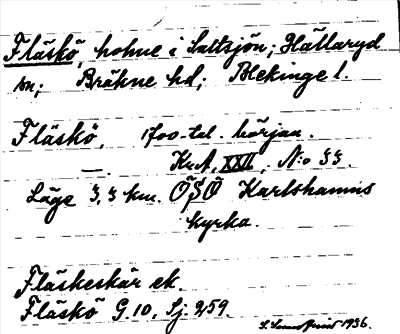 Fläskö, holme i Saltsjön; Hällaryd
sn; Bräkne hd; Blekinge l.
Fläskö, 1700-tal. början.
—. Kr. A. XXII, N:o 33.
Läge 3,3 km. ÖSÖ Karlshamns
kyrka.
Fläskeskär ek.
Fläskö G. 10, Sj. 259.
1936.